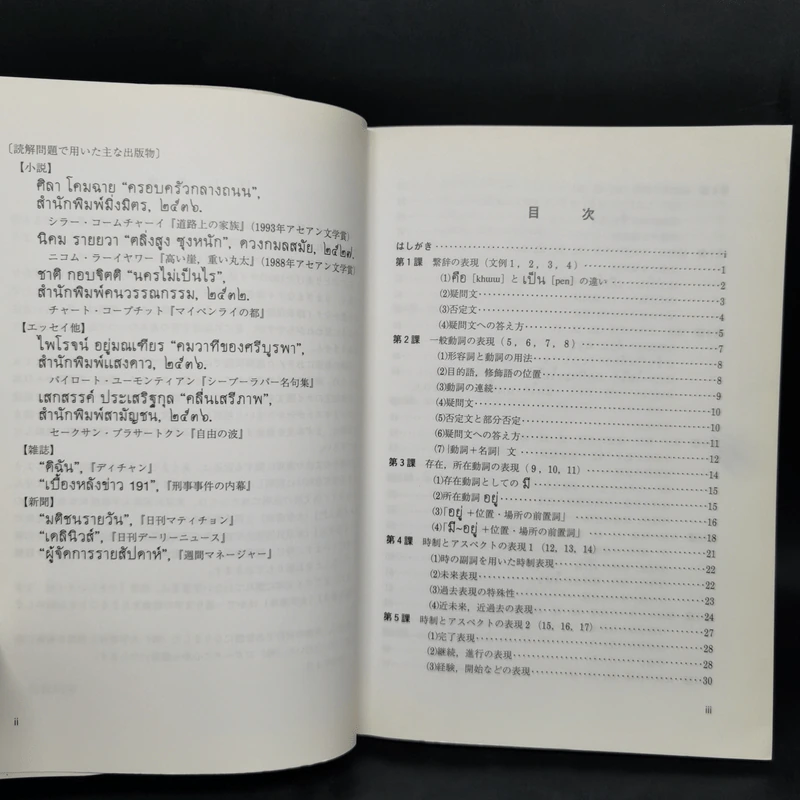 〔読解問題で用いた主な出版物〕
【小説】
ศิลา โคมฉาย "ครอบครัวกลางถนน",
สำนักพิมพ์มิ่งมิตร, ๒๕๓๖.
シラー・コームチャーイ『道路上の家族』(1993年アセアン文学賞)
นิคม รายยวา "ตลิ่งสูง ซุงหนัก", ดวงกมลสมัย, ๒๕๒๗.
ニコム・ラーイヤワー『高い崖，重い丸太』(1988年アセアン文学賞)
ชาติ กอบจิตติ "นครไม่เป็นไร",
สำนักพิมพ์คนวรรณกรรม, ๒๕๓๒.
チャート・コープチット『マイペンライの都』
【エッセイ他】
ไพโรจน์ อยู่มณเฑียร "คมวาทีของศรีบูรพา",
สำนักพิมพ์แสงดาว, ๒๕๓๖.
パイロート・ユーモンティアン『シーブーラパー名句集』
เสกสรรค์ ประเสริฐกุล "คลื่นเสรีภาพ",
สำนักพิมพ์สามัญชน, ๒๕๓๖.
セークサン・プラサートクン『自由の波』
【雑誌】
"ดิฉัน", 『ディチャン』
"เบื้องหลังข่าว 191", 『刑事事件の内幕』
【新聞】
"มติชนรายวัน", 『日刊マティチョン』
"เดลินิวส์", 『日刊デーリーニュース』
"ผู้จัดการรายสัปดาห์", 『週間マネージャー』
ii
目 次
はしがき……i
第1課 繋辞の表現（文例1，2，3，4）……1
(1)คือ [khɯɯ] と เป็น [pen] の違い……2
(2)疑問文……3
(3)否定文……4
(4)疑問文への答え方……5
第2課 一般動詞の表現（5，6，7，8）……7
(1)形容詞と動詞の用法……8
(2)目的語，修飾語の位置……8
(3)動詞の連続……9
(4)疑問文……10
(5)否定文と部分否定……10
(6)疑問文への答え方……11
(7)[動詞+名詞] 文……12
第3課 存在，所在動詞の表現（9，10，11）……14
(1)存在動詞としての มี……15
(2)所在動詞 อยู่……15
(3)「อยู่ +位置・場所の前置詞」……16
(4)「มี~อยู่ +位置・場所の前置詞」……18
第4課 時制とアスペクトの表現1（12，13，14）……21
(1)時の副詞を用いた時制表現……22
(2)未来表現……22
(3)過去表現の特殊性……23
(4)近未来，近過去の表現……24
第5課 時制とアスペクトの表現2（15，16，17）……27
(1)完了表現……28
(2)継続，進行の表現……28
(3)経験，開始などの表現……30
iii